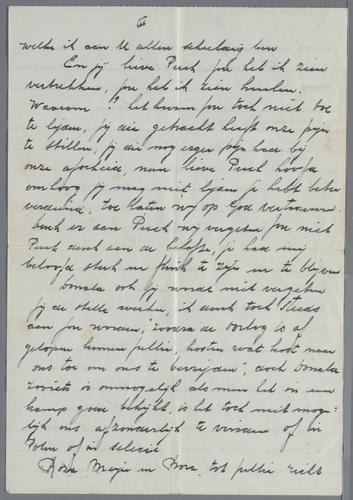 welke ik aan U allen schuldig ben
En jij lieve Puck jou heb ik zien
vertrekken, jou heb ik zien huilen.
Waarom? het kwam jou toch niet toe
te lijden, jij die getracht heeft onze pijn
te stillen, jij die nog erger pijn had bij
onze afscheid, nou lieve Puck hoofd
omhoog jij mag niet lijden je hebt beter
verdiend, toe laten wij op God vertrouwen.
denk er aan Puck wij vergeten jou niet
Puck denk aan de belofte, je had mij
beloofd sterk en flink te zijn en te blijven
ook jij wordt niet vergeten
jij de stille werker, ik denk toch steeds
aan jou woorden, zoodra de oorlog is af-
geloopen komen jullie, kosten wat kost naar
ons toe om ons te bevrijden, doch
zooiets is onmogelijk als men het in een
kamp goed bekijkt, is het toch niet moge-
lijk ons afzonderlijk te vinden of in
Polen of in Silezie
Meijer en tot jullie